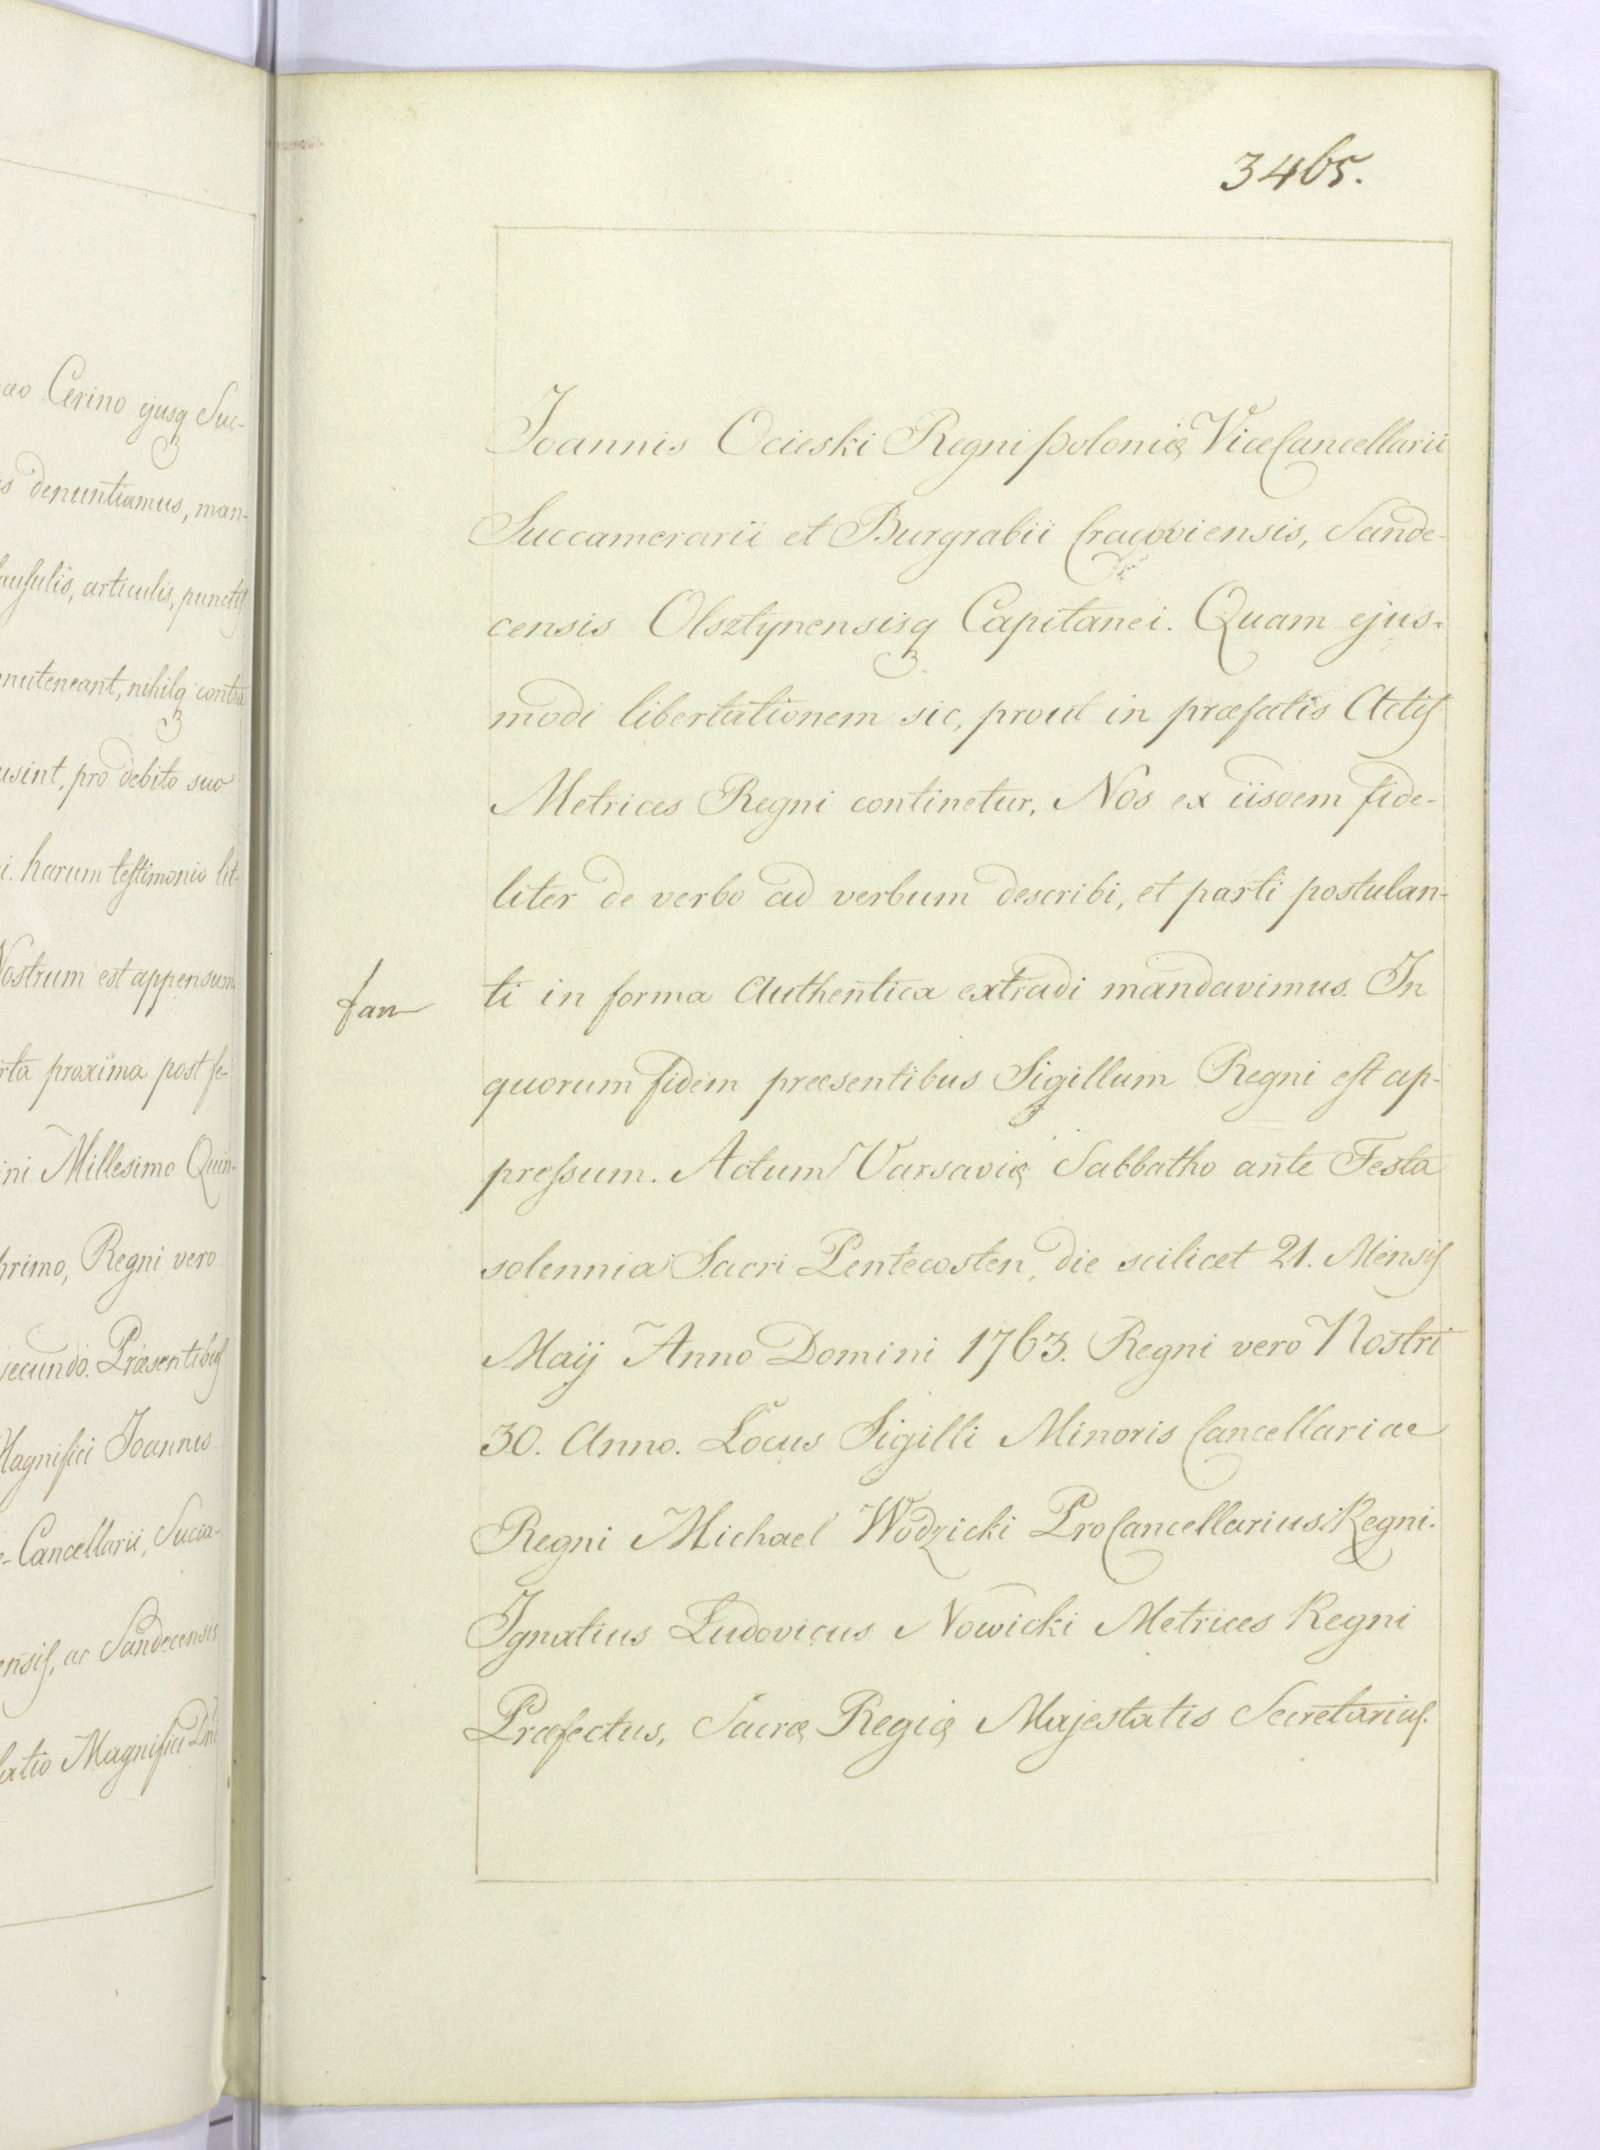 æo Cerino ejusq Suc-
s denuntiamus, man-
ausulis, articulis, punctis
nuteneant, nihilq contra
usint, pro debito suo
i. harum testimonio lit-
Nostrum est appensum
rta proxima post fe-
ini Millesimo Quin-
primo, Regni vero
secundo. Præsentibus
Magnifici Joannis
e-Cancellarii, Succa-
ensis, ac Sandecensis
latio Magnifici Dni
3465.
Joannis Ocieski Regni poloniæ ViceCancellarii
Succamerarii et Burgrabii Cracoviensis, Sande-
censis Olsztynensisq Capitanei. Quam ejus-
modi libertationem sic, prout in præfatis Actis
Metrices Regni continetur, Nos ex iisdem fide-
liter de verbo ad verbum describi, et parti postulan-
ti in forma Authentica extradi mandavimus. In
quorum fidem præsentibus Sigillum Regni est ap-
pressum. Actum Varsaviæ Sabbatho ante Festa
solennia Sacri Pentecosten, die scilicet 21. Mensis
Maij Anno Domini 1763. Regni vero Nostri
30. Anno. Locus Sigilli Minoris Cancellariae
Regni Michael Wodzicki ProCancellarius Regni.
Ignatius Ludovicus Nowicki Metrices Regni
Præfectus, Sacræ Regiæ Majestatis Secretarius.